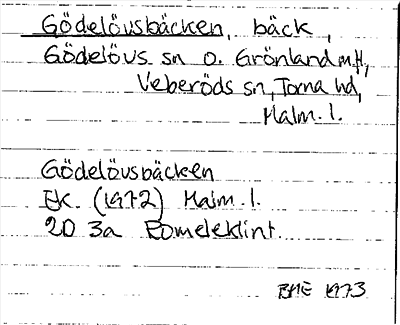 Gödelövsbäcken, bäck,
Gödelövs sn o. Grönland m.fl,
Veberöds sn, Torna hd,
Malm. l.
Gödelövsbäcken
EK. (1972) Malm. l.
2D 3a Romeleklint.
BME 1973